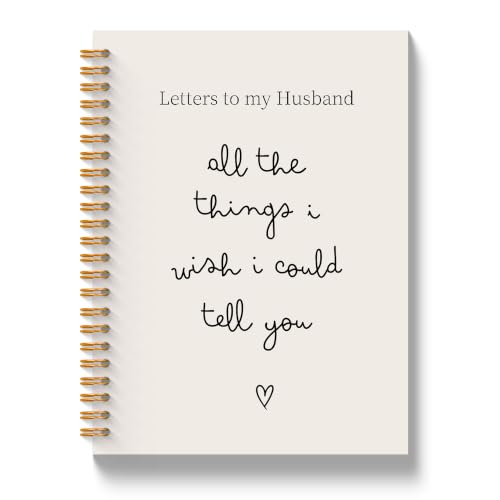 Letters to my Husband
all the
things i
wish i could
tell you